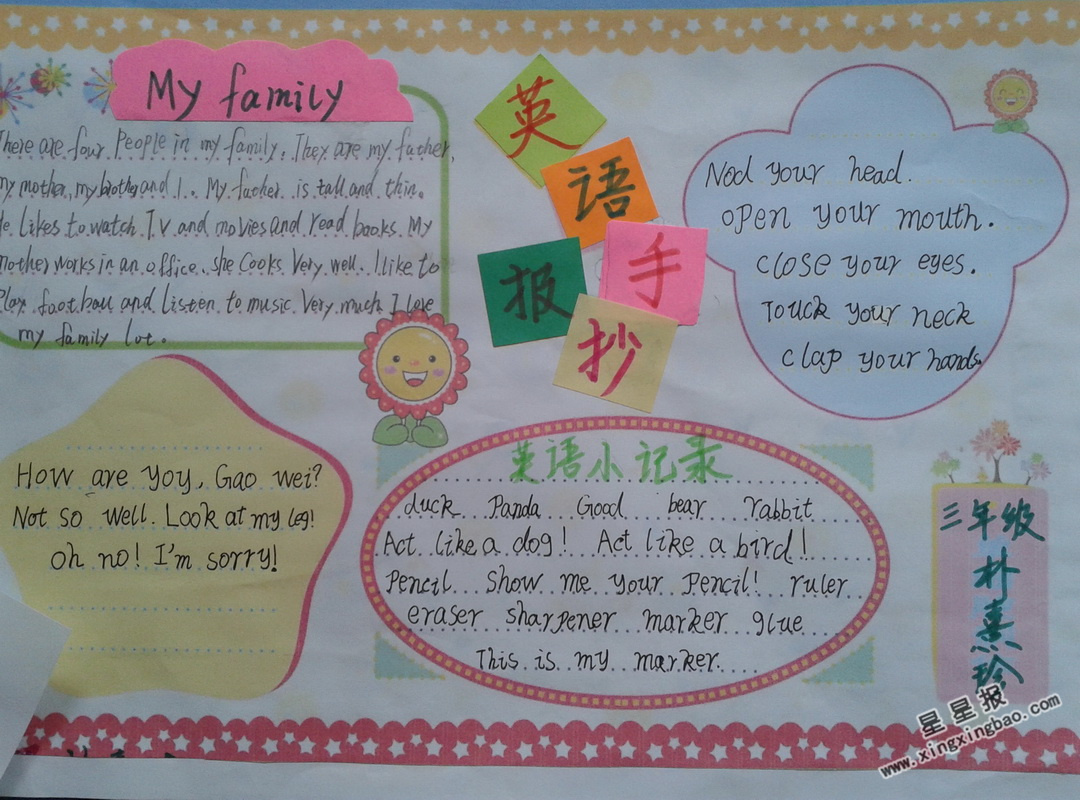 My family
There are four People in my family. They are my father,
my mother, my brother and I. My father is tall and thin.
He likes to watch T.V and movies and read books. My
mother works in an office. she cooks very well. I like to
Play football and listen to music very much I love
my family lot.
英
语
手
抄
报
Nod your head.
open your mouth.
close your eyes.
Touck your neck
clap your hands.
How are yoy, Gao wei?
Not so well. Look at my leg!
oh no! I'm sorry!
英语小记录
duck Panda Good bear rabbit
Act like a dog! Act like a bird!
Pencil show me your Pencil! ruler
eraser sharpener marker glue
This is my marker.
三年级
朴熹玲
星星报
www.xingxingbao.com